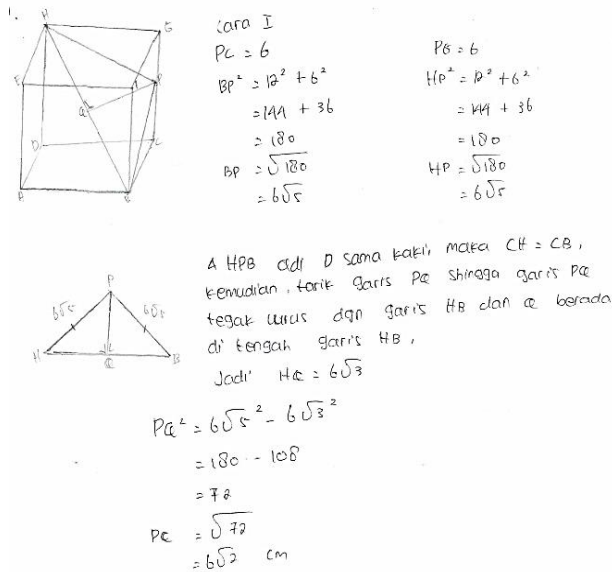 1.
H
G
E
F
P
Q
D
C
A
B
Cara I
PC = 6
BP² = 12² + 6²
= 144 + 36
= 180
BP = √180
= 6√5
PG = 6
HP² = 12² + 6²
= 144 + 36
= 180
HP = √180
= 6√5
P
6√5
6√5
H
Q
B
Δ HPB adl Δ sama kaki, maka CH = CB,
kemudian, tarik garis PQ shingga garis PQ
tegak lurus dgn garis HB dan Q berada
di tengah garis HB,
Jadi HQ = 6√3
PQ² = 6√5² - 6√3²
= 180 - 108
= 72
PQ = √72
= 6√2 cm